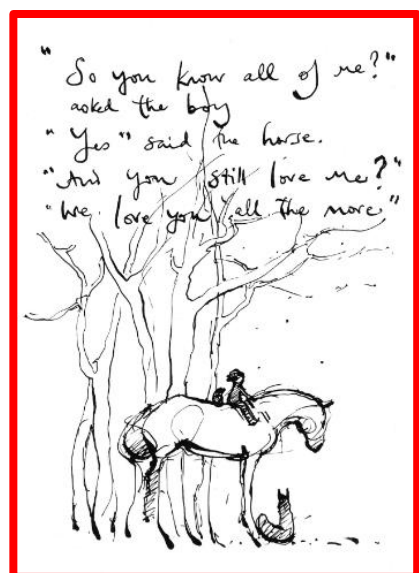 "So you know all of me?"
asked the boy
"Yes" said the horse.
"And you still love me?"
"We love you all the more"